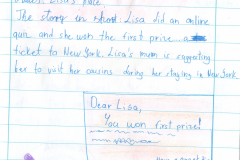 The story in short: Lisa did an online
quiz and she won the first prize... a
ticket to New York. Lisa's mum is suggesting
her to visit her cousins during her staying in New York
Dear Lisa,
You won first prize!